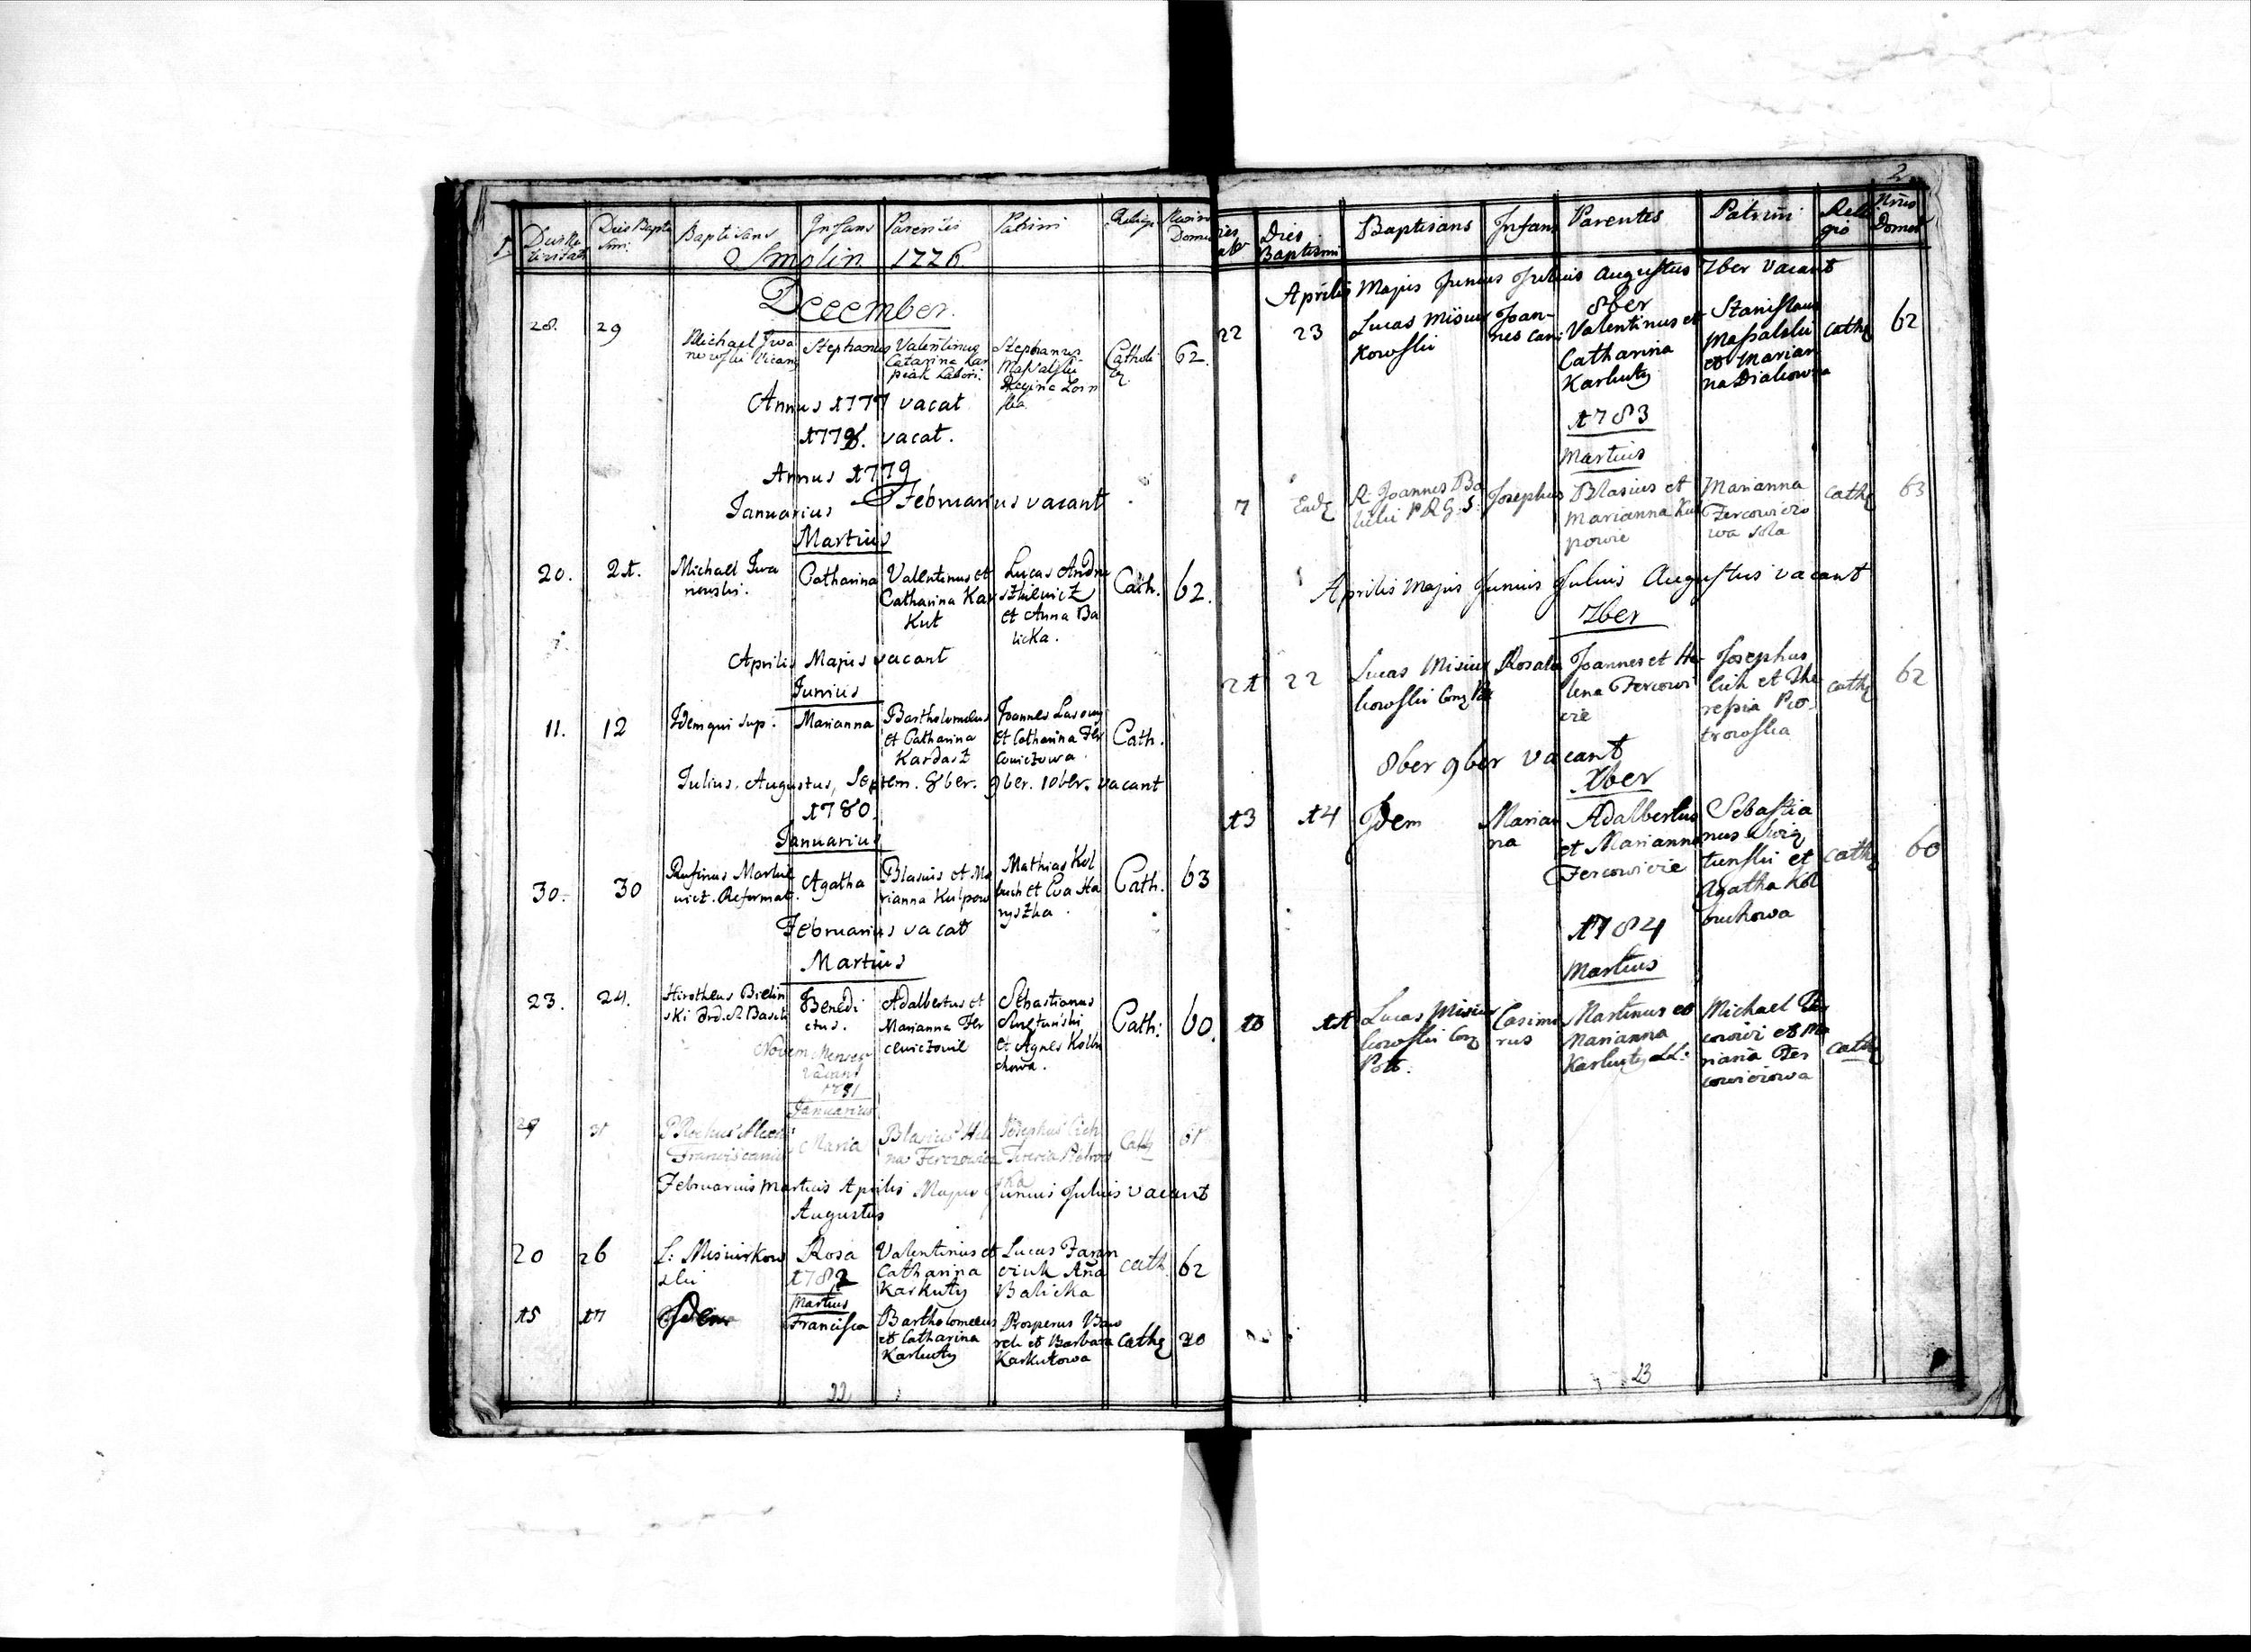 Dies Na
tivitatis
Dies Bapti
smi
Baptisans
Infans
Parentes
Patrini
Religio
Numerus
Domus
Smolin 1776.
December.
28. 29 Michael Iwa
nowski Vicari
Stephanus
Valentinus
Catarina Kar
piak Labori.
Stephanus
Massalski
Regina Lorn
ska
Catholi
62.
Annus 1777 vacat
1778. vacat.
Annus 1779
Januarius Februarius vacant
Martius
20. 21. Michael Iwa
nowski.
Catharina
Valentinus et
Catharina Kar
Kut
Lucas Andru
szkiewicz
et Anna Ba
licka.
Cath. 62.
Aprilis Majus vacant
Junius
11. 12 Idem qui sup.
Marianna
Bartholomeus
et Catharina
Kardasz
Joannes Lasowy
et Catharina Fer
cowiczowa
Cath.
Julius, Augustus, Septem. 8ber. 9ber. 10ber. vacant
1780
Januarius
30. 30 Rufinus Markie
wicz. Reformat.
Agatha
Blasius et Ma
rianna Kulpow
Mathias Kol
buch et Eva Ha
ryszka.
Cath. 63
Februarius vacat
Martius
23. 24. Hirotheus Bielin
ski Ord. S. Basili
Benedi
ctus.
Adalbertus et
Marianna Fer
cewiczowie
Sebastianus
Swiętuński
et Agnes Kolbu
chowa.
Cath: 60.
Novem Menses
vacant
1781
Januarius
29 31 P Rochus
Franciscanus
Maria
Blasius Hele
na Ferczowicz
Josephus Cich
Teresia Piotrow
ska
Cath 61
Februarius Martius Aprilis Majus Junius Julius vacant
Augustus
20 26 L: Misiurkow
ski
Rosa
Valentinus et
Catharina
Karkuty
Lucas Faran
ciuk Aña
Balicka
cath. 62
1782
Martius
15 17 Idem
Francisca
Bartholomeus
et Catharina
Karkuty
Prosperus Baw
rek et Barbara
Karkutowa
cath 20
22
2
Dies
Nativ
Dies
Baptismi
Baptisans
Infans
Parentes
Patrini
Reli
gio
Nrus
Domus
Aprilis Majus Junius Julius Augustus 7ber vacant
8ber
22 23 Lucas Misiur
kowski
Joan-
nes Can
Valentinus et
Catharina
Karkuty
Stanislaus
Massalski
et Marian
na Diakowna
cath 62
1783
Martius
7 Ead R: Joannes Ba
licki P R G: S:
Josephus
Blasius et
Marianna Kul
powie
Marianna
Fercowiczo
wa sola
cath 63
Aprilis Majus Junius Julius Augustus vacant
7ber
21 22 Lucas Misiur
kowski
Rosalia
Joannes et He-
lena Fercowi
cze
Josephus
Cich et The
resia Pio-
trowska
cath 62
8ber 9ber vacant
Xber
13 14 Idem
Marian
na
Adalbertus
et Marianna
Fercowicze
Sebastia
nus Swię
tunski et
Agatha Kol
buchowa
cath 60
1784
Martius
10 11 Lucas Misiur
kowski
Casimi
rus
Martinus et
Marianna
Karkuty LL:
Michael Fer
cowicz et Ma
riaña Fer
cowiczowa
cath
23